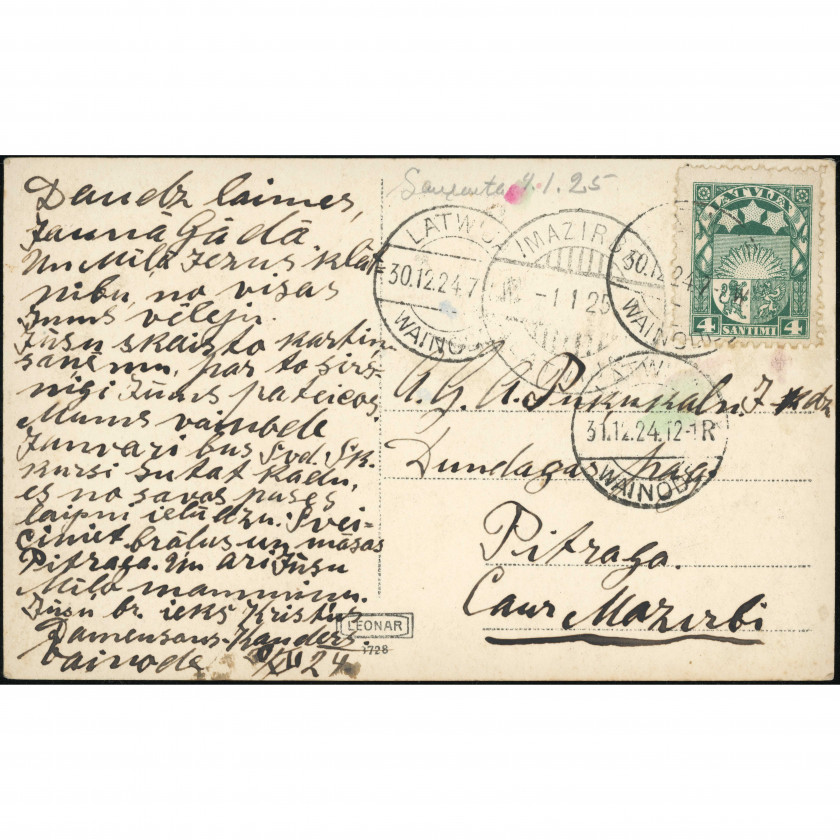 Daudz laimes,
Jaunā Gādā
un Mīļā Jezus klāt
nibu, no visas
Jums vēleju.
Jūsu skaisto kartin,
saņēmu, par to sirs-
nigi Jūms pateicos.
Mums vainode
Janvari bus Svd. Sk.
kursi sutat kadu,
es no savas puses
laipni ielūdzu. Svei-
ciniet brāļus un māsas
Pitraga. un ari Jūsu
Mīļo mammiņu.
Jūsu br. ieks Kristus
Damensons-Kanders
Vainode 24.
1.1.25
LATWIJA
30.12.24.7
WAINODE
MAZIRBE
-1 1 25
30.12.24.7
WAINODE
LATVIJA
4 SANTIMI 4
31.12.24.12-1R
WAINODE
A. G. A. Pukukaln. J
Dundagas pag.
Pitraga.
Caur Mazirbi
LEONAR
1728